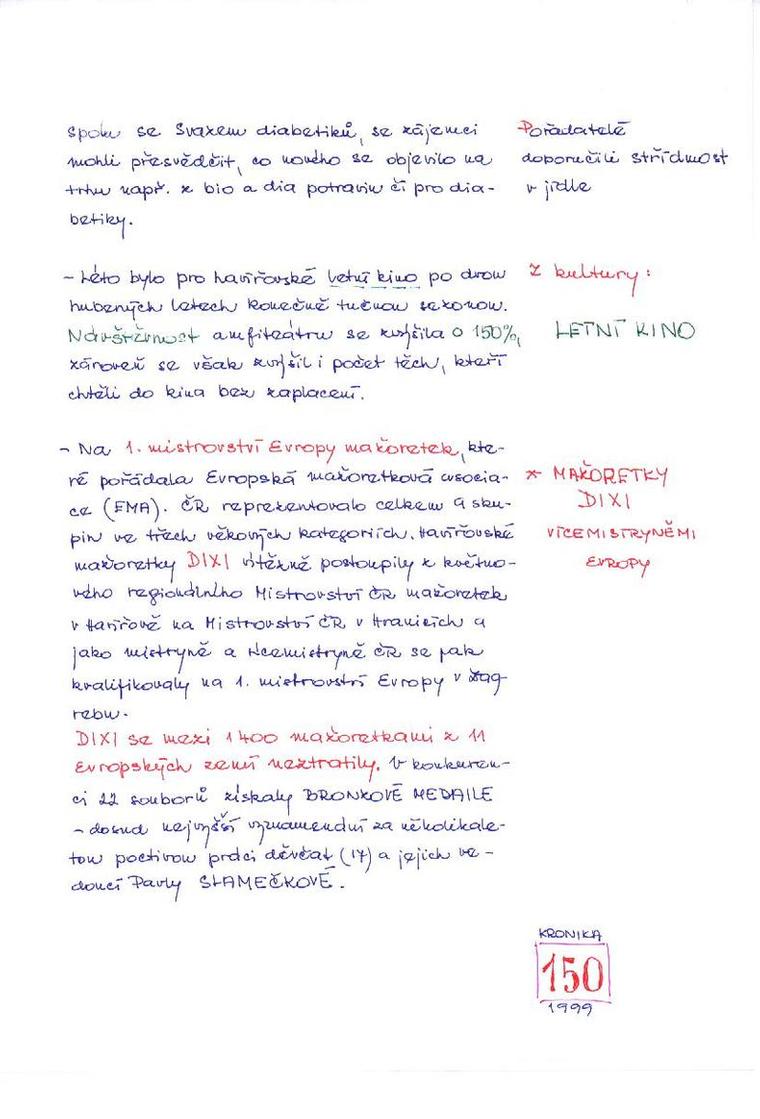 spolu se Svazem diabetiků, se zájemci
mohli přesvědčit, co nového se objevilo na
trhu např. z bio a dia potravin či pro dia-
betiky.
Pořadatelé
doporučili střídmost
v jídle
- Léto bylo pro havířovské letní kino po dvou
hubených letech konečně tučnou sezonou.
Návštěvnost amfiteátru se zvýšila o 150%,
zároveň se však zvýšil i počet těch, kteří
chtěli do kina bez zaplacení.
Z kultury:
LETNÍ KINO
- Na 1. mistrovství Evropy mažoretek, kte-
ré pořádala Evropská mažoretková asocia-
ce (EMA). ČR reprezentovalo celkem 9 sku-
pin ve třech věkových kategoriích. Havířovské
mažoretky DIXI vítězně postoupily z květno-
vého regionálního Mistrovství ČR mažoretek
v Havířově na Mistrovství ČR v Hranicích a
jako mistryně a vicemistryně ČR se pak
kvalifikovaly na 1. mistrovství Evropy v Zág-
rebu.
DIXI se mezi 1400 mažoretkami z 11
Evropských zemí neztratily. V konkuren-
ci 22 souborů získaly BRONZOVÉ MEDAILE
- dosud nejvyšší vyznamenání za několikale-
tou poctivou práci děvčat (17) a jejich ve-
doucí Pavly SLAMEČKOVÉ.
* MAŽORETKY
DIXI
VICEMISTRYNĚMI
EVROPY
KRONIKA
150
1999